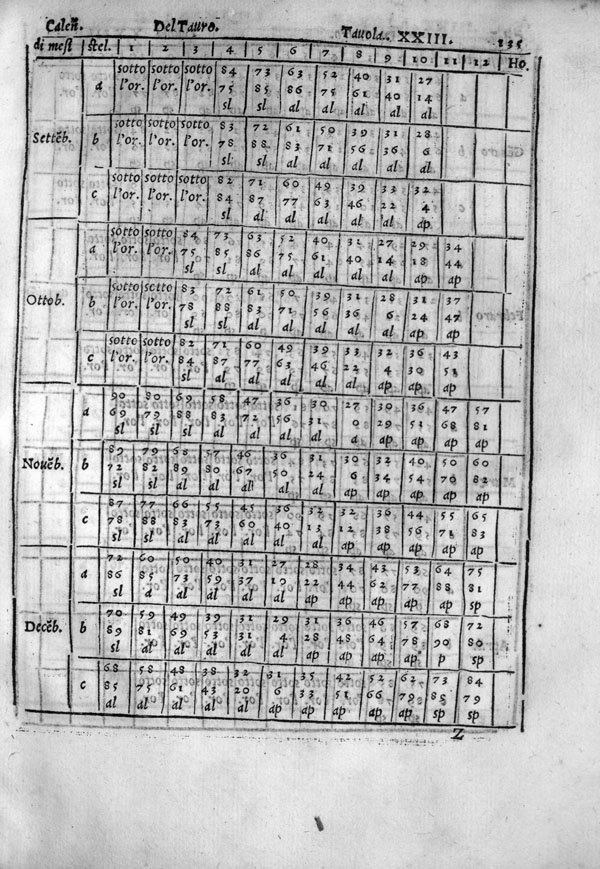 Caleñ. Del Tauro. Tauola. XXIII. 135
di mesi stel. 1 2 3 4 5 6 7 8 9 10 11 12 Ho.
sotto sotto sotto 84 73 63 52 40 31 27
a l'or. l'or. l'or. 75 85 86 75 61 40 14
sl sl al al al al al
sotto sotto sotto 83 72 61 50 39 31 28
Settẽb. b l'or. l'or. l'or. 78 88 83 71 56 36 6
sl sl al al al al al
sotto sotto sotto 82 71 60 49 39 33 32
c l'or. l'or. l'or. 84 87 77 63 46 22 4
sl al al al al al ap
sotto sotto 84 73 63 52 40 31 27 29 34
a l'or. l'or. 75 85 86 75 61 40 14 18 44
sl sl al al al al al ap ap
sotto sotto 83 72 61 50 39 31 28 31 37
Ottob. b l'or. l'or. 78 88 83 71 56 36 6 24 47
sl sl al al al al al ap ap
sotto sotto 82 71 60 49 39 33 32 36 43
c l'or. l'or. 84 87 77 63 46 22 4 30
sl al al al al al ap ap ap
90 80 69 58 47 36 30 27 30 36 47 57
a 69 79 88 83 72 56 31 0 29 51 68 81
sl sl sl al al al al al ap ap ap ap
89 79 68 57 46 36 31 30 32 40 50 60
Nouẽb. b 72 82 89 80 67 50 24 6 34 54 70 82
sl sl al al al al al ap ap ap ap ap
87 77 66 55 45 36 32 32 36 44 55 65
c 78 88 83 73 60 40 13 12 38 56 71 83
sl sl al al al al al ap ap ap ap ap
72 60 50 40 31 27 28 34 43 53 64 75
a 86 85 73 59 37 10 22 44 62 77 88 81
sl a al al al al ap ap ap ap al sp
70 59 49 39 31 29 31 36 46 57 68 72
Decẽb. b 89 81 69 53 31 4 28 48 64 78 90 80
sl al al al al al ap ap ap ap p sp
68 58 48 38 32 31 35 42 52 62 73 84
c 85 75 61 43 20 6 33 51 66 79 85 79
al al al al al ap ap ap ap ap sp sp
Z